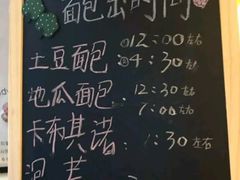 面包出时间
土豆面包 12:00左右
4:30
地瓜面包 12:30
7:00
卡布其诺 1:30左右